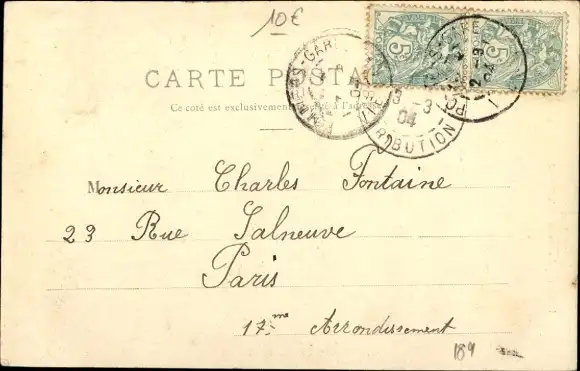 10€
CARTE POSTA
Ce coté est exclusivement à l'adre
5 5
-GARE
3 -3
04
RIBUTION
Monsieur Charles Fontaine
23 Rue Salneuve
Paris
17me Arrondissement
189